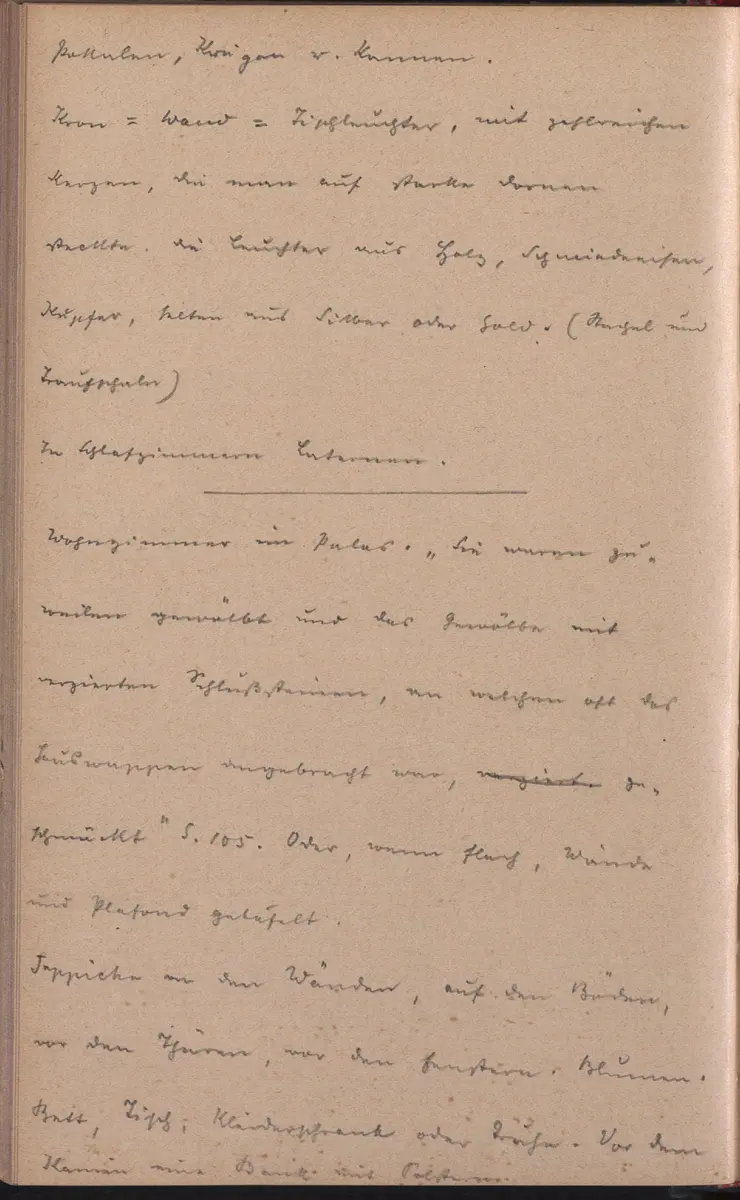 Pokalen, Krügen u. Kannen.
Kron = Wand = Tischleuchter, mit zahlreichen
Kerzen, die man auf starke Dornen
steckte. Die Leuchter aus Holz, Schmiedeeisen,
Kupfer, selten aus Silber oder Gold. (Stachel und
Traufschale)
In Schlafzimmern Laternen.
Wohnzimmer im Palas. „Sie waren zu„
weilen gewölbt und das Gewölbe mit
verzierten Schlußsteinen, an welchen oft das
Hauswappen angebracht war, verziert. ge„
schmückt" S. 105. Oder, wenn flach, Wände
und Plafond getäfelt.
Teppiche an den Wänden, auf den Böden,
vor den Thüren, vor den Fenstern. Blumen.
Bett, Tisch, Kleiderschrank oder Truhe. Vor dem
Kamin eine Bank mit Polstern.